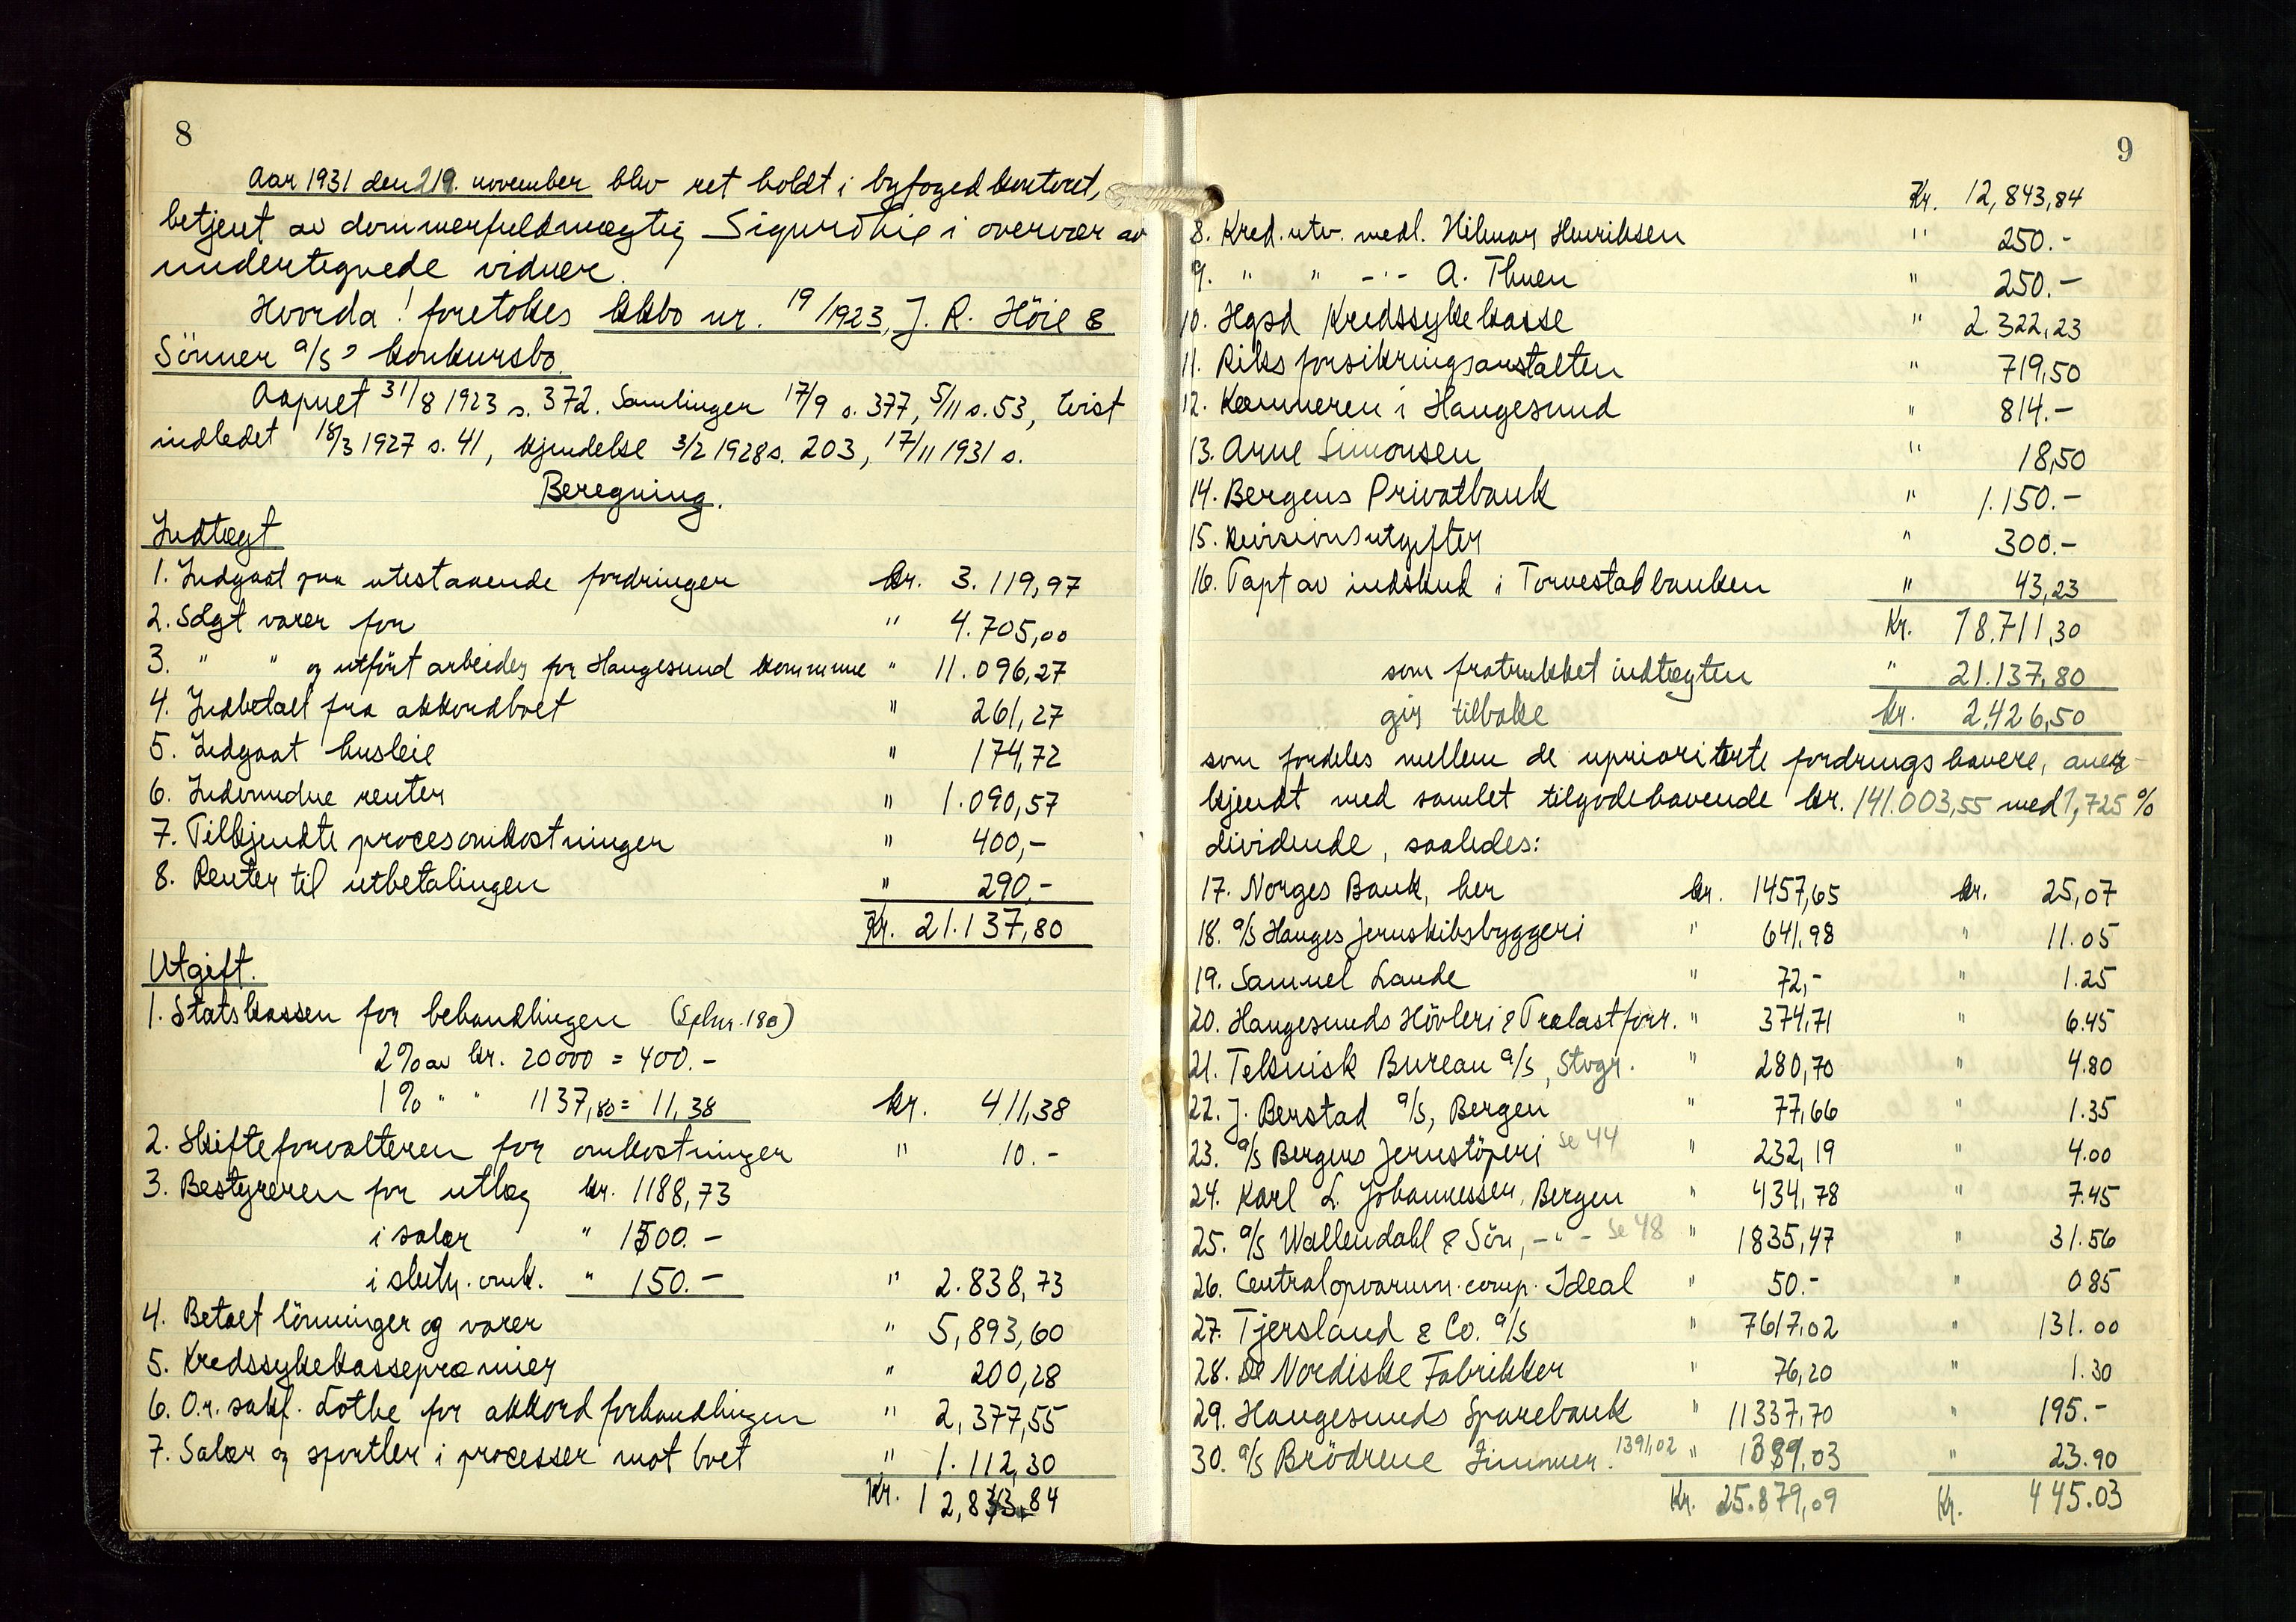 8
Aar 1931 den 219. november blev ret holdt i byfogedkontoret,
betjent av dommerfuldmægtig Sigurd Lie i overvær av
undertegnede vidner.
Hvorda! foretokes kkbo nr. 19/1923, J. R. Höie &
Sönner a/s' konkursbo.
Aapnet 31/8 1923 s. 372. Samlinger 17/9 s. 377, 5/11 s. 53, tvist
indledet 18/3 1927 s. 41, kjendelse 3/2 1928 s. 203, 17/11 1931 s.
Beregning.
Indtægt
1. Indgaat paa utestaaende fordringer kr. 3.119,97
2. Solgt varer for " 4.705,00
3. " " og utfört arbeider for Haugesund kommune " 11.096,27
4. Indbetalt fra akkordboet " 261,27
5. Indgaat husleie " 174,72
6. Indvundne renter " 1.090,57
7. Tilkjendte procesomkostninger " 400,-
8. Renter til utbetalingen " 290.-
Kr. 21.137,80
Utgift.
1. Statskassen for behandlingen (Splnr. 180)
2% av kr. 20000 = 400.-
1% " " 1137,80 = 11,38 kr. 411,38
2. Skifteforvalteren for omkostninger " 10.-
3. Bestyreren for utlæg kr. 1188,73
i salær " 1500.-
i slutn. omk. " 150.- " 2.838,73
4. Betalt lönninger og varer " 5,893,60
5. Kredssykekassepræmier " 200,28
6. O.r. sakf. Lothe for akkordforhandlingen " 2,377,55
7. Salær og sportler i processer mot boet " 1.112,30
Kr. 12,843,84
9
Kr. 12,843,84
8. Kred. utv. medl. Hilmar Henriksen " 250.-
9. " " -"- A. Thuen " 250.-
10. Hgsd Kredssykekasse " 2.322,23
11. Riksforsikringsanstalten " 719,50
12. Kæmneren i Haugesund " 814.-
13. Arne Simonsen " 18,50
14. Bergens Privatbank " 1.150.-
15. Revisionsutgifter " 300.-
16. Tapt av indskud i Torvestadbanken " 43,23
Kr. 18.711,30
som fratrukket indtægten " 21.137,80
gir tilbake kr. 2,426,50
som fordeles mellem de uprioriterte fordringshavere, aner-
kjendt med samlet tilgodehavende kr. 141.003,55 med 1,725 %
dividende, saaledes:
17. Norges Bank, her kr. 1457,65 kr. 25,07
18. a/s Hauges Jernskibsbyggeri " 641,98 " 11.05
19. Samuel Lande " 72,- " 1.25
20. Haugesunds Hövleri & Trælastforr. " 374,71 " 6.45
21. Teknisk Bureau a/s, Stvgr. " 280,70 " 4.80
22. J. Berstad a/s, Bergen " 77,66 " 1.35
23. a/s Bergens Jernstöperi se 44 " 232,19 " 4.00
24. Karl L. Johannessen, Bergen " 434,78 " 7.45
25. a/s Wallendahl & Sön, -"- se 48 " 1835,47 " 31.56
26. Centralopvarm. comp. Ideal " 50.- " 0.85
27. Tjersland & Co. a/s " 7617,02 " 131.00
28. De Nordiske Fabrikker " 76,20 " 1.30
29. Haugesunds Sparebank " 11337,70 " 195.-
30. a/s Brödrene Zimmer. 1391,02 " 1389,03 " 23.90
Kr. 25.879,09 Kr. 445.03